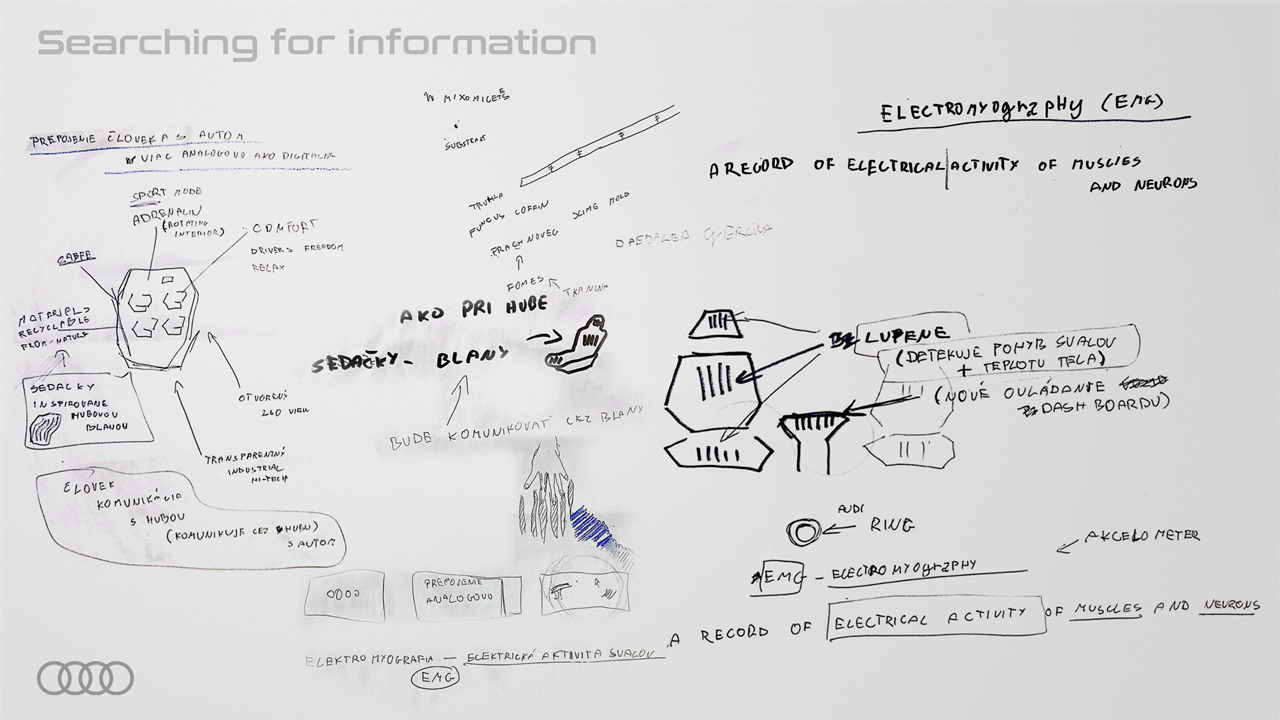 Searching for information
PREPOJENIE ČLOVEKA S AUTOM
VIAC ANALOGOVO AKO DIGITALNE
SPORT MODE
ADRENALIN
(ROTATING
INTERIOR)
COMFORT
DRIVERS FREEDOM
RELAX
MATERIALS
RECYCLABLE
FROM NATURE
SEDACKY
INSPIROVANE
HUBOVOU
BLANOU
OTVORENÝ
260 VIEW
TRANSPARENTNÝ
INDUSTRIAL
HI-TECH
ČLOVEK
KOMUNIKÁCIA
S HUBOU
(KOMUNIKUJE CEZ HUBU)
S AUTOM
MIXOMICETE
SUBSTRAT
TRUHLA
FUNGUS COFFIN
SLIME MOLD
PRACHNOVEC
FOMES
TKANINA
DAEDALEA QUERCINA
AKO PRI HUBE
SEDAČKY - BLANY
BUDE KOMUNIKOVAŤ CEZ BLANY
PREPOJENIE
ANALOGOVO
ELEKTROMYOGRAFIA - ELEKTRICKÁ AKTIVITA SVALOV
EMG
ELECTROMYOgraPHy (EMG)
A RECORD OF ELECTRICAL ACTIVITY OF MUSCLES
AND NEURONS
LUPENE
(DETEKUJE POHYB SVALOV
+ TEPLOTU TELA)
(NOVÉ OVLÁDANIE
DASHBOARDU)
AUDI
RING
AKCELOMETER
EMG - ELECTROMYOgraPHY
A RECORD OF ELECTRICAL ACTIVITY OF MUSCLES AND NEURONS